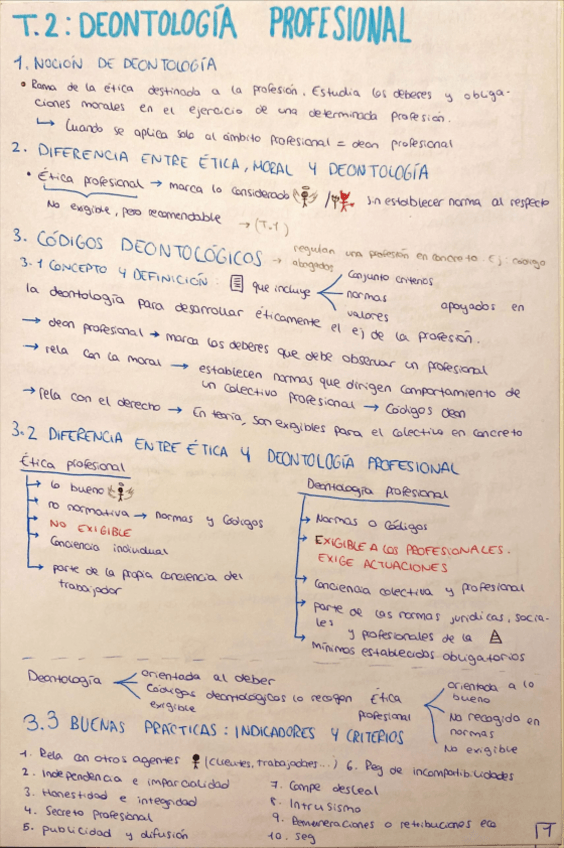 T.2: DEONTOLOGÍA PROFESIONAL
1. NOCIÓN DE DEONTOLOGÍA
• Rama de la ética destinada a la profesión. Estudia los deberes y obliga-
ciones morales en el ejercicio de una determinada profesión.
↳ Cuando se aplica solo al ámbito profesional = deon profesional
2. DIFERENCIA ENTRE ÉTICA, MORAL Y DEONTOLOGÍA
• Ética profesional → marca lo considerado / sin establecer norma al respecto
No exigible, pero recomendable → (T.1)
3. CÓDIGOS DEONTOLÓGICOS → regulan una profesión en concreto. Ej: código
abogados
3.1 CONCEPTO Y DEFINICIÓN: que incluye
conjunto criterios
normas
valores
apoyados en
la deontología para desarrollar éticamente el ej de la profesión.
→ deon profesional → marca los deberes que debe observar un profesional
→ rela con la moral → establecen normas que dirigen comportamiento de
un colectivo profesional → Códigos deon
→ rela con el derecho → En teoría, son exigibles para el colectivo en concreto
3.2 DIFERENCIA ENTRE ÉTICA Y DEONTOLOGÍA PROFESIONAL
Ética profesional
→ lo bueno
→ no normativa → normas y códigos
→ NO EXIGIBLE
→ Conciencia individual
→ parte de la propia conciencia del
trabajador
Deontología profesional
→ Normas o códigos
→ EXIGIBLE A LOS PROFESIONALES.
EXIGE ACTUACIONES
→ Conciencia colectiva y profesional
→ parte de las normas jurídicas, socia-
les y profesionales de la
→ mínimos establecidos obligatorios
Deontología
orientada al deber
Códigos deontológicos lo recogen
exigible
Ética
profesional
orientada a lo
bueno
No recogida en
normas
No exigible
3.3 BUENAS PRÁCTICAS: INDICADORES Y CRITERIOS
1. Rela con otros agentes (clientes, trabajadores...)
2. Independencia e imparcialidad
3. Honestidad e integridad
4. Secreto profesional
5. publicidad y difusión
6. Reg de incompatibilidades
7. Compe desleal
8. Intrusismo
9. Remuneraciones o retribuciones eco
10. seg